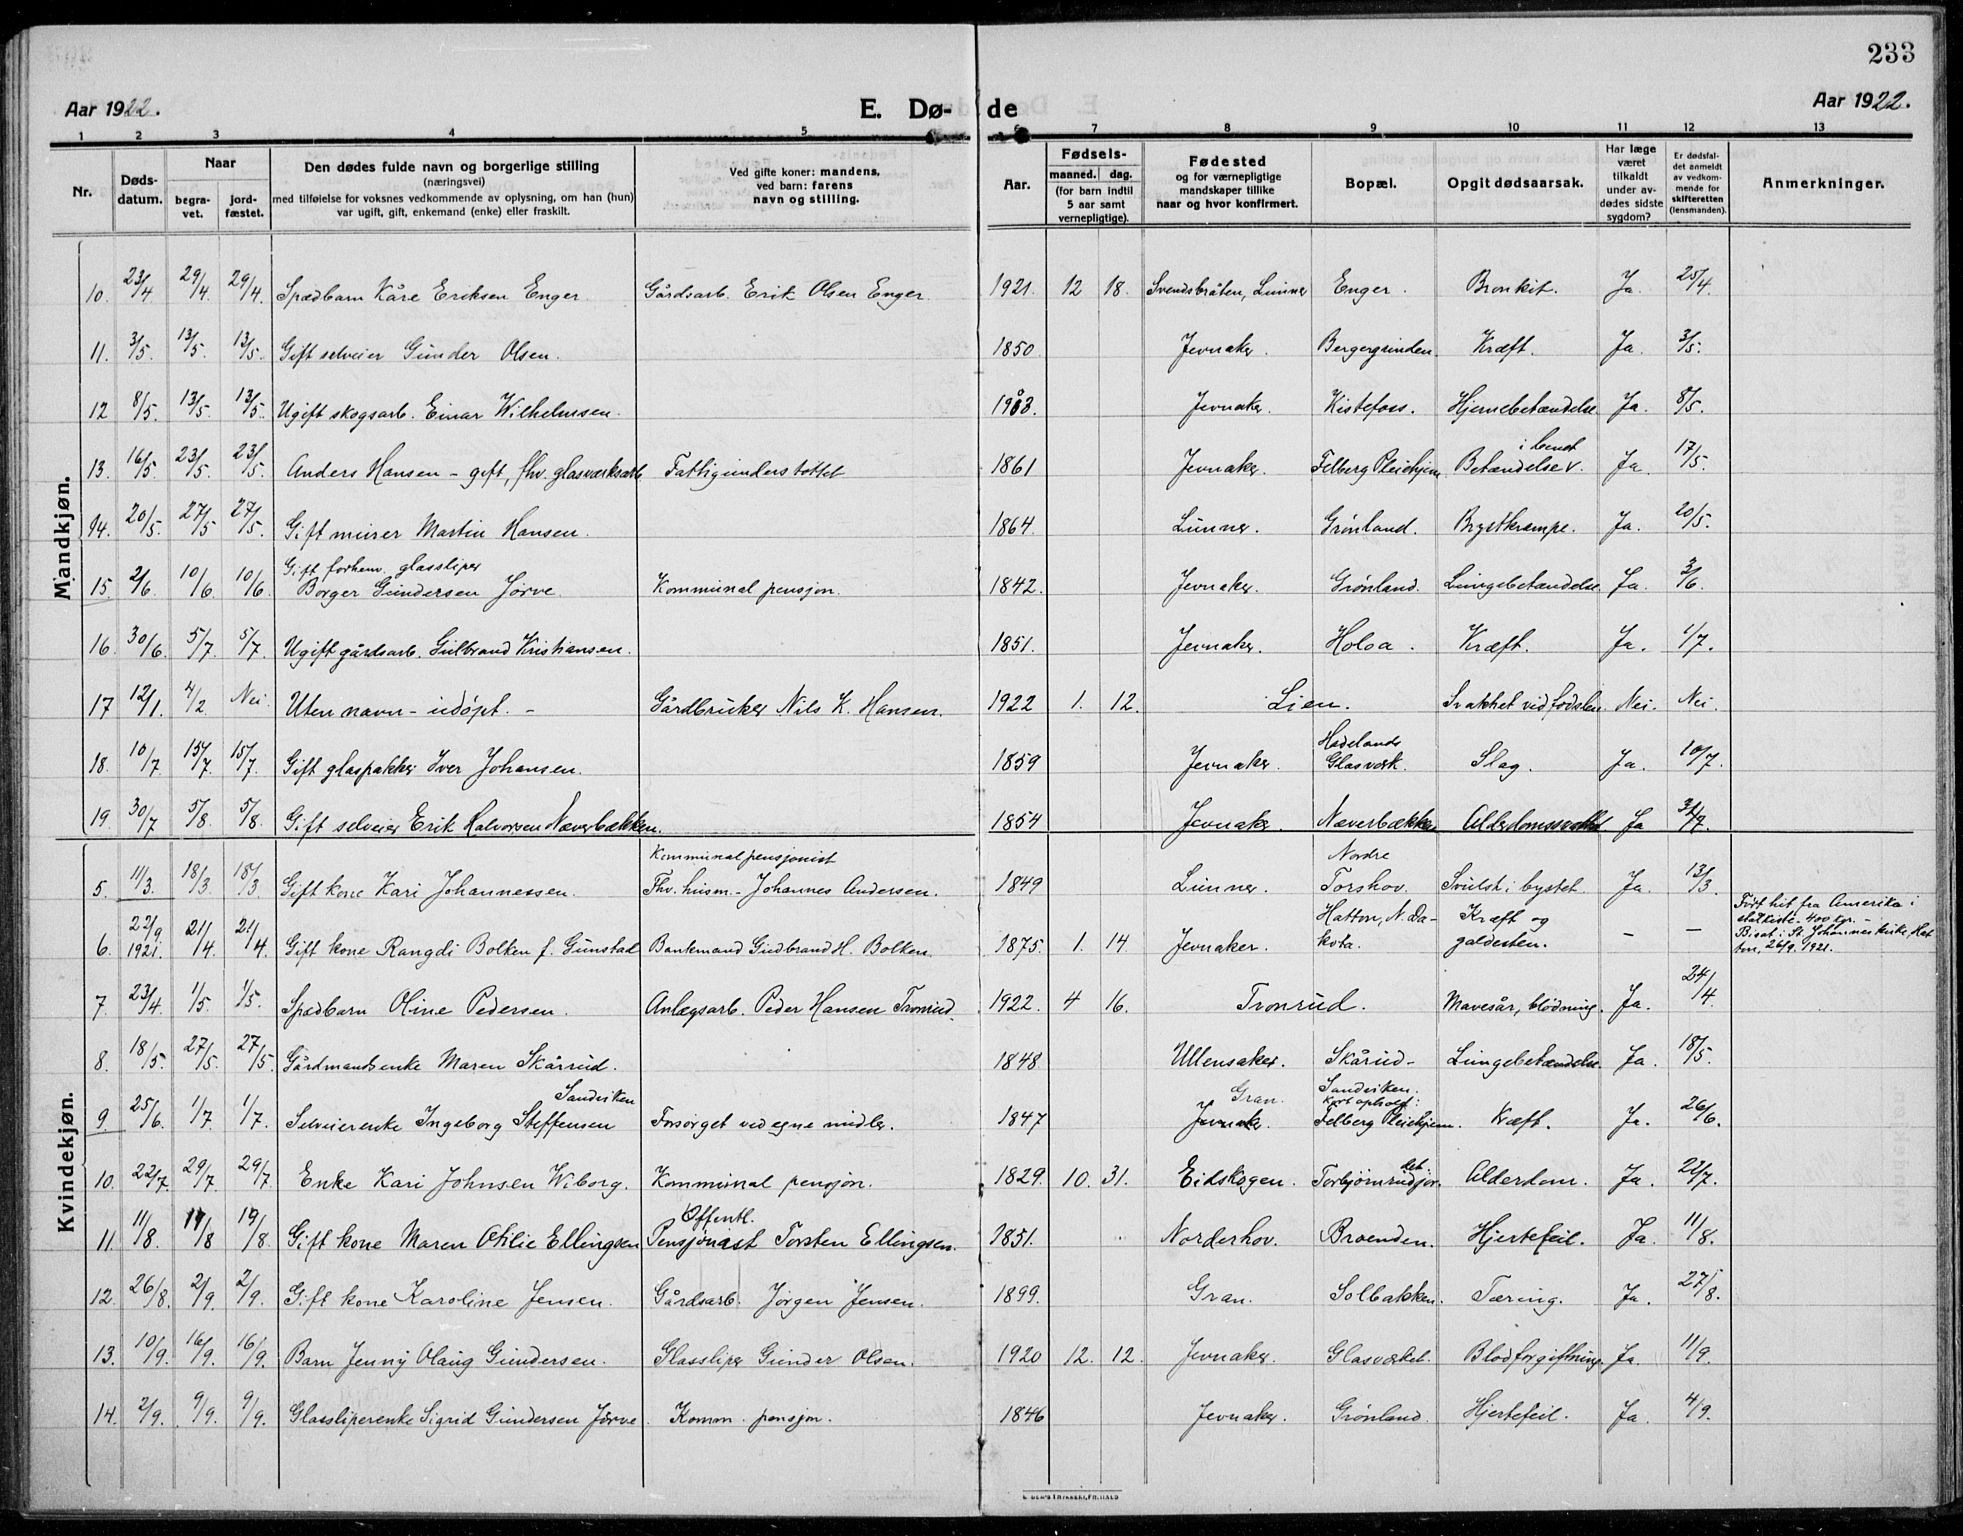 233
Aar 1922. E. Dø- de Aar 1922.
1 2 3 4 5 6 7 8 9 10 11 12 13
Nr. Dødsdatum. Naar begravet. jordfæstet. Den dødes fulde navn og borgerlige stilling (næringsvei) med tilføielse for voksnes vedkommende av oplysning, om han (hun) var ugift, gift, enkemand (enke) eller fraskilt. Ved gifte koner: mandens, ved barn: farens navn og stilling. Aar. Fødsels- maaned. dag. (for barn indtil 5 aar samt vernepligtige). Fødested og for værnepligtige mandskaper tillike naar og hvor konfirmert. Bopæl. Opgit dødsaarsak. Har læge været tilkaldt under avdødes sidste sygdom? Er dødsfaldet anmeldt av vedkommende for skifteretten (lensmanden). Anmerkninger.
Mandkjøn.
10. 23/4 29/4. 29/4. Spædbarn Kåre Eriksen Enger Gårdsarb. Erik Olsen Enger 1921. 12 18. Svendsbråten, Lunner Enger. Bronkit. Ja. 25/4.
11. 3/5. 13/5. 13/5. Gift selveier Gunder Olsen. 1850. Jevnaker. Bergergrinden. Kræft. Ja. 3/5.
12 8/5. 13/5. 13/5. Ugift skogsarb. Einar Wilhelmsen. 1903. Jevnaker. Kistefoss. Hjernebetændelse. Ja. 8/5.
13. 16/5 23/5. 23/5. Anders Hansen - gift, fhv. glasværksarb. Fattigunderstøttet 1861 Jevnaker. Felberg Pleiehjem Betændelse i benet. Ja. 17/5.
14. 20/5. 27/5 27/5. Gift murer Martin Hansen. 1864. Lunner. Grønland. Brystkrampe. Ja. 20/5.
15. 2/6. 10/6 10/6 Gift forhenv. glassliper
Borger Gundersen Jørve. Kommunal pensjon. 1842. Jevnaker. Grønland. Lungebetændelse. Ja. 3/6.
16. 30/6. 5/7. 5/7. Ugift gårdsarb. Gulbrand Kristiansen. 1851. Jevnaker. Holoa. Kræft. Ja. 1/7.
17 12/1. 4/2. Nei. Uten navn - udøpt. - Gårdbruker Nils K. Hansen. 1922 1. 12. Lien. Svakhet ved fødslen. Nei. Nei.
18. 10/7 15/7. 15/7. Gift glaspakker Iver Johansen. 1859 Jevnaker. Hadelands Glasværk. Slag. Ja. 10/7.
19. 30/7 5/8. 5/8. Gift selveier Erik Halvorsen Næverbækken. 1854 Jevnaker. Næverbækken Alderdomssvakhet Ja 31/7.
Kvindekjøn.
5. 11/3. 18/3 18/3 Gift kone Kari Johannessen. Kommunal pensjonist
Fhv. husm. - Johannes Andersen. 1849 Lunner. Nordre Torshov. Svulst i bystet. Ja. 13/3
6. 22/9 1921. 21/4 21/4 Gift kone Rangdi Bolken f. Gunstad Bankmand Gudbrand H. Bolken. 1875. 1. 14 Jevnaker. Hatton, N. Dakota. Kræft og galdesten. - - Ført hit fra Amerika i
stålkiste - 400 kgr. -
Bisat i St. Johannes kirke, Hat-
ton, 26/9. 1921.
7. 23/4. 1/5 1/5. Spædbarn Oline Pedersen. Anlægsarb. Peder Hansen Tronrud. 1922. 4 16. Tronrud. Mavesår, blödning. Ja. 24/4.
8. 18/5. 27/5. 27/5. Gårdmandsenke Maren Skårrud. 1848. Ullensaker. Skårud - Lungebetændelse. Ja. 18/5.
9. 25/6. 1/7. 1/7. Selveierenke Ingeborg Steffensen Sandviken Forsørget ved egne midler. 1847 Gran. Jevnaker. Sandviken. Kort ophold: Felberg Pleiehjem. Kræft. Ja. 26/6.
10. 22/7. 29/7. 29/7. Enke Kari Johnsen Wiborg. Kommunal pensjon. 1829. 10. 31. Eidskogen. Torbjørnrudjordet. Alderdom. Ja. 22/7.
11. 11/8. 19/8 19/8. Gift kone Maren Otilie Ellingsen Offentl.
Pensjonist Torsten Ellingsen. 1851. Norderhov. Broenden. Hjertefeil. Ja. 11/8.
12. 26/8. 2/9. 2/9. Gift kone Karoline Jensen. Gårdsarb. Jørgen Jensen. 1899. Gran. Solbakken. Tæring. Ja. 27/8.
13. 10/9. 16/9. 16/9. Barn Jenny Olaug Gundersen. Glassliper Gunder Olsen. 1920 12. 12. Jevnaker. Glasverket. Blodforgiftning. Ja. 11/9.
14. 2/9. 9/9. 9/9. Glassliperenke Sigrid Gundersen Jørve. Komm. pensjon. 1846 Jevnaker. Grønland. Hjertefeil. Ja. 4/9.